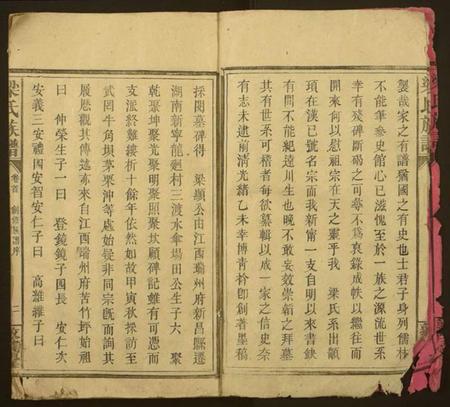 製哉家之有譜猶國之有史也士君子身列儒林
不能筆參史館心已滋愧至於一族之源流世系
幸有殘碑斷碣之可尋不爲裒錄成帙以繼往而
開來何以慰祖宗在天之靈乎我 梁氏系出顓
頊在漢已號名宗而我新甯一支自明以來書缺
有間不能紀遠川生也晚不敢妄效崇韜之拜墓
其有世系可稽者每欲纂輯以成一家之信史奈
有志未逮前清光緒乙未幸博青衿卽創著墨稿
採閱墓碑得 梁顯公由江西瑞州府新昌縣遷
湖南新寧龍廻村三渡水傘塲田公生子六 聚
乾聚坤聚光聚明聚照聚坎顧碑記雖有可憑而
支派終難縷析十餘年依然如故甲寅秋採訪至
武岡牛角垻茅栗沖等處始疑非同宗旣而詢其
履歷觀其傳述亦來自江西瑞州府苦竹坪始祖
曰 仲榮生子一曰 登鏡鏡子四長 安仁次
安義三安禮四安智安仁子曰 高雄雄子曰
梁氏族譜
卷首
創修族譜序
二
梁氏族譜